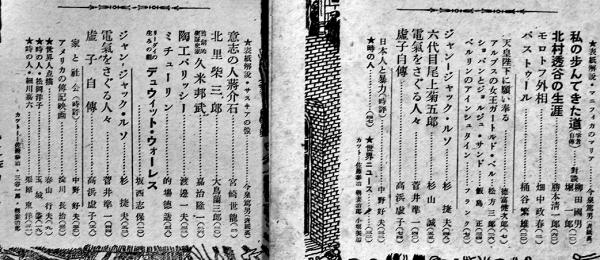 ★表紙解説・マニフィカのマリア 今泉篤男(表紙裏)
私の歩んできた道 対談 柳田國男 堀一郎
北村透谷の生涯 勝本清一郎
モロトフ外相 畑中政春
パストゥール 桶谷繁雄
天皇陛下に願い奉る 徳富健次郎
アルプスの女王ガートルド・ベル 松方三郎
ショパンとジョルジュ・サンド 飯島正
ベルリンのアインシュタイン フランク
ジャン・ジャック・ルソー 杉捷夫
六代目尾上菊五郎 杉山誠
電氣をさぐる人々 菅井準一
虚子自傳 高浜虚子
日本人と暴力(時評) 中野好夫
★時の人 ★世界ニュース
カット
★表紙解説・サスキアの像 今泉篤男(表紙裏)
意志の人蔣介石 宮崎世龍
北里柴三郎 大鳥蘭三郎
久米邦武 嘉治隆一
陶工パリッシー 渡邊一夫
ミチューリン 的場德造
リーダイの生みの親 デュウィット・ウォーレス 坂西志保
ジャン・ジャック・ルソー 杉捷夫
電氣をさぐる人々 菅井準一
虚子自傳 高浜虚子
家と社会(時評) 中野好夫
アメリカの傳記映画 淀川長治
★世界人点描 春山行夫
★時の人・松岡洋子 玉城
★時の人・細川嘉六 栗原
カット